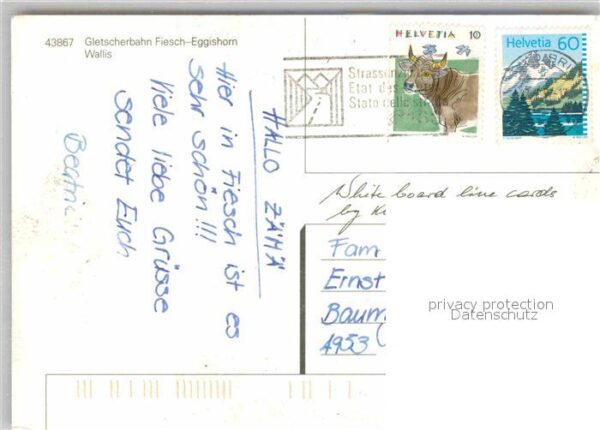 43867 Gletscherbahn Fiesch-Eggishorn
Wallis
HELVETIA 10
Helvetia 60
Strassen
Etat des
Stato delle
HALLO ZÄMÄ
Hier in Fiesch ist es
sehr schön!!!
Viele liebe Grüsse
sendet Euch
Beatri
by
Fam
Ernst
Baum
4953
privacy protection
Datenschutz